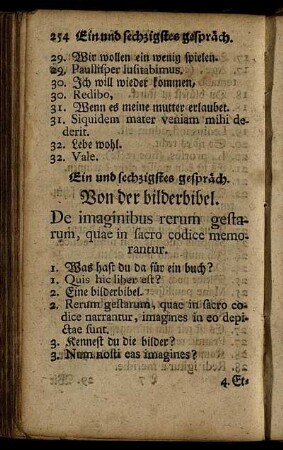 254 Ein und sechzigstes gespräch.
29. Wir wollen ein wenig spielen.
29. Paullisper lusitabimus.
30. Ich will wieder kommen,
30. Redibo,
31. Wenn es meine mutter erlaubet.
31. Siquidem mater veniam mihi de-
derit.
32. Lebe wohl.
32. Vale.
Ein und sechzigstes gespräch.
Von der bilderbibel.
De imaginibus rerum gesta-
rum, quae in sacro codice memo-
rantur.
1. Was hast du da für ein buch?
1. Quis hic liber est?
2. Eine bilderbibel.
2. Rerum gestarum, quae in sacro co-
dice narrantur, imagines in eo depi-
ctae sunt.
3. Kennest du die bilder?
3. Num nosti eas imagines?
4. Et-